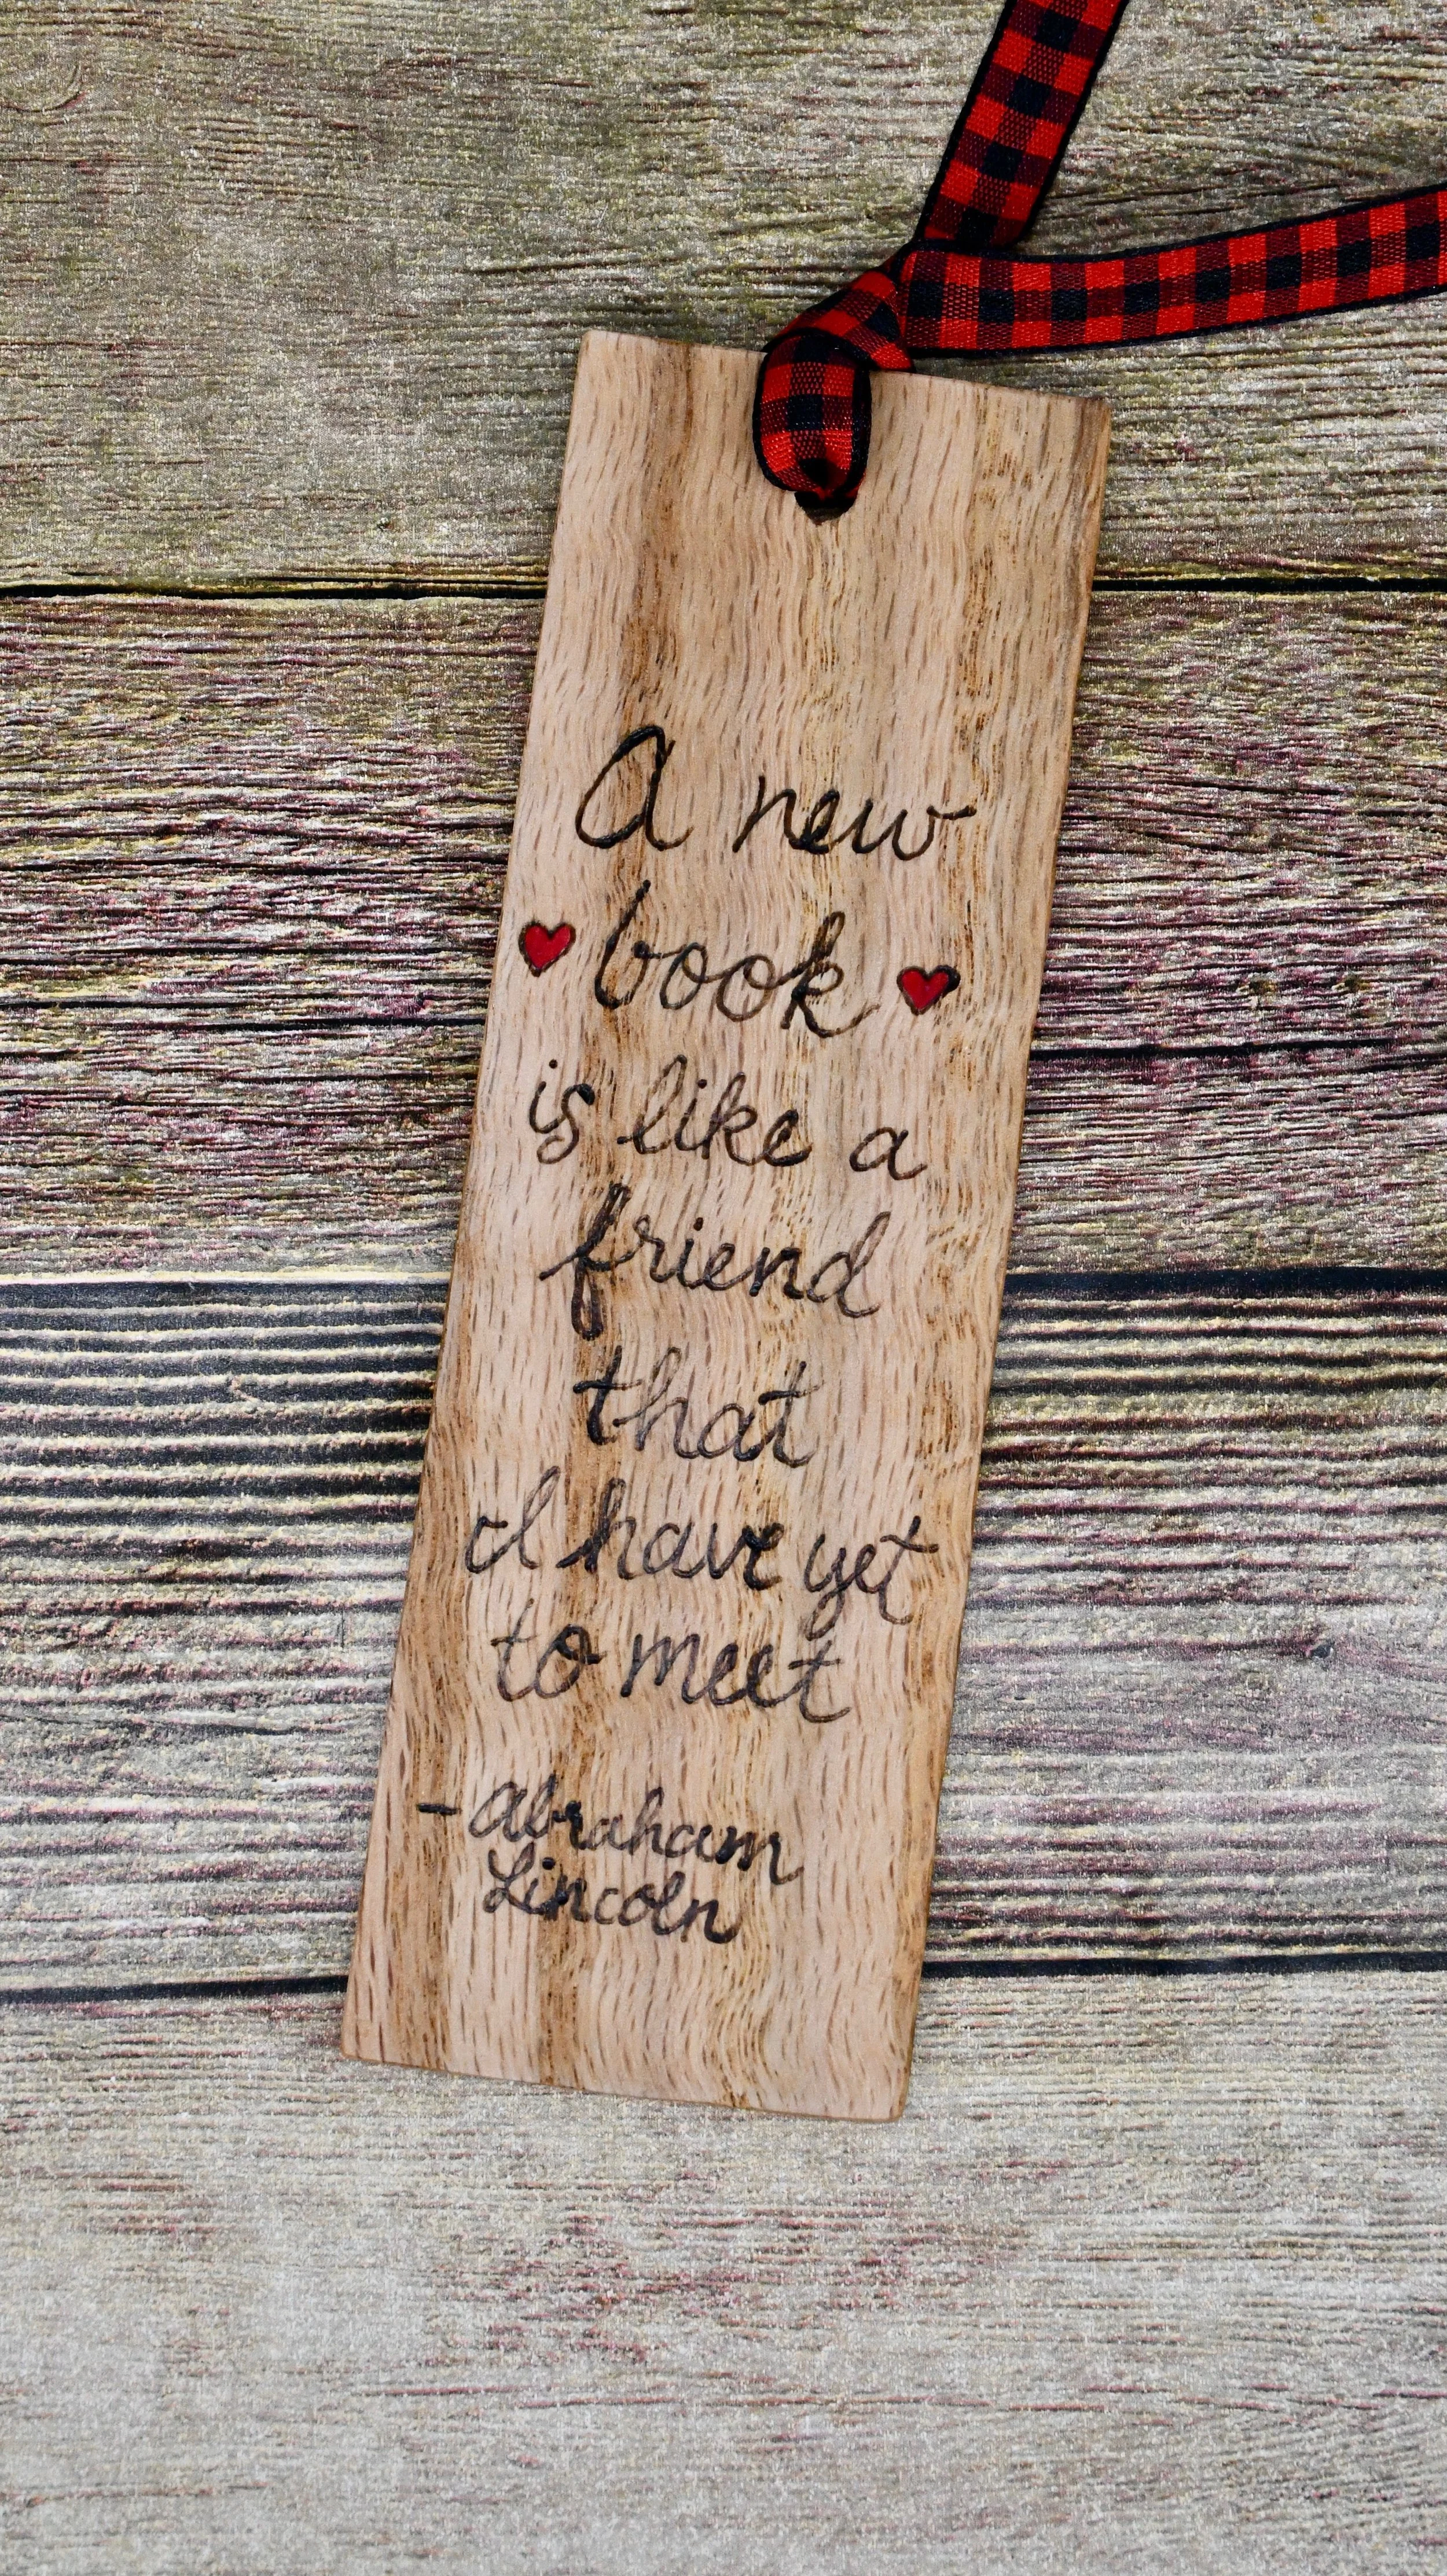 A new
book
is like a
friend
that
I have yet
to meet
- Abraham
Lincoln